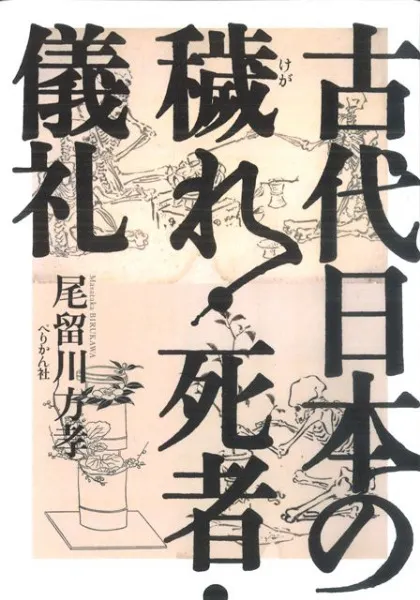 古代日本の
穢れ・死者・
けが
儀礼
Masataka BIRUKAWA
尾留川方孝
ぺりかん社